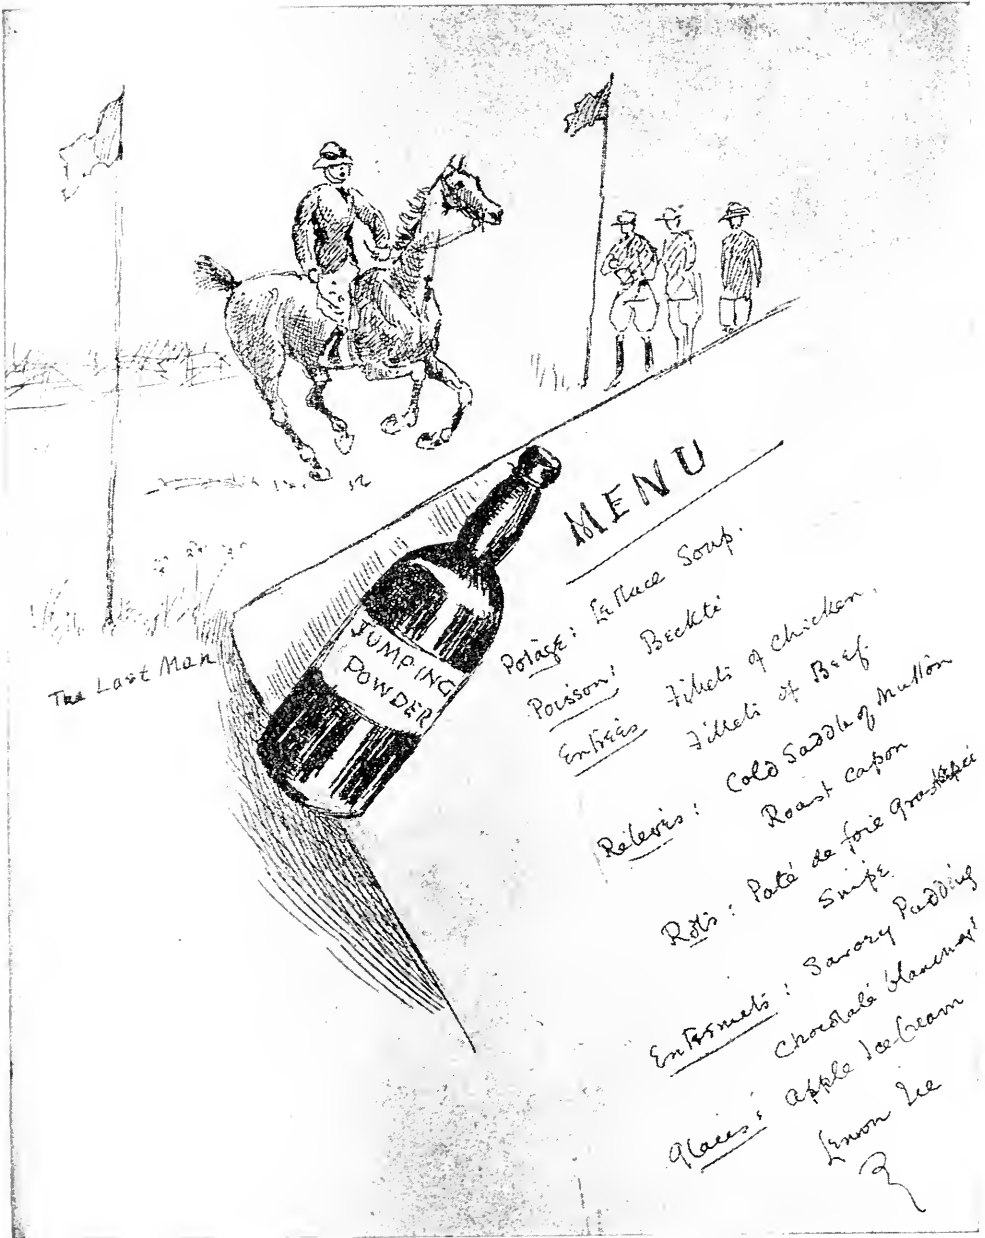 The Last Man
JUMPING
POWDER
MENU
Potage: Lettuce Soup.
Poisson: Beckti
Entrées Fillets of Chicken,
Fillets of Beef.
Relevés: Cold Saddle of Mutton
Roast Capon
Rôts: Paté de foie gras
Snipe
Entremets: Savory Pudding
Chocolate
Glaces: Apple Ice Cream
Lemon Ice